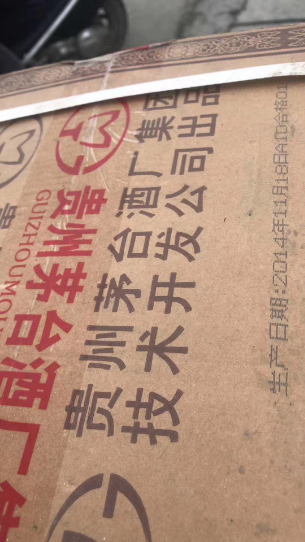 贵州茅台酒厂集团
技术开发公司出品
贵州茅台酒厂
GUIZHOUMO
生产日期:2014年11月18日
贵